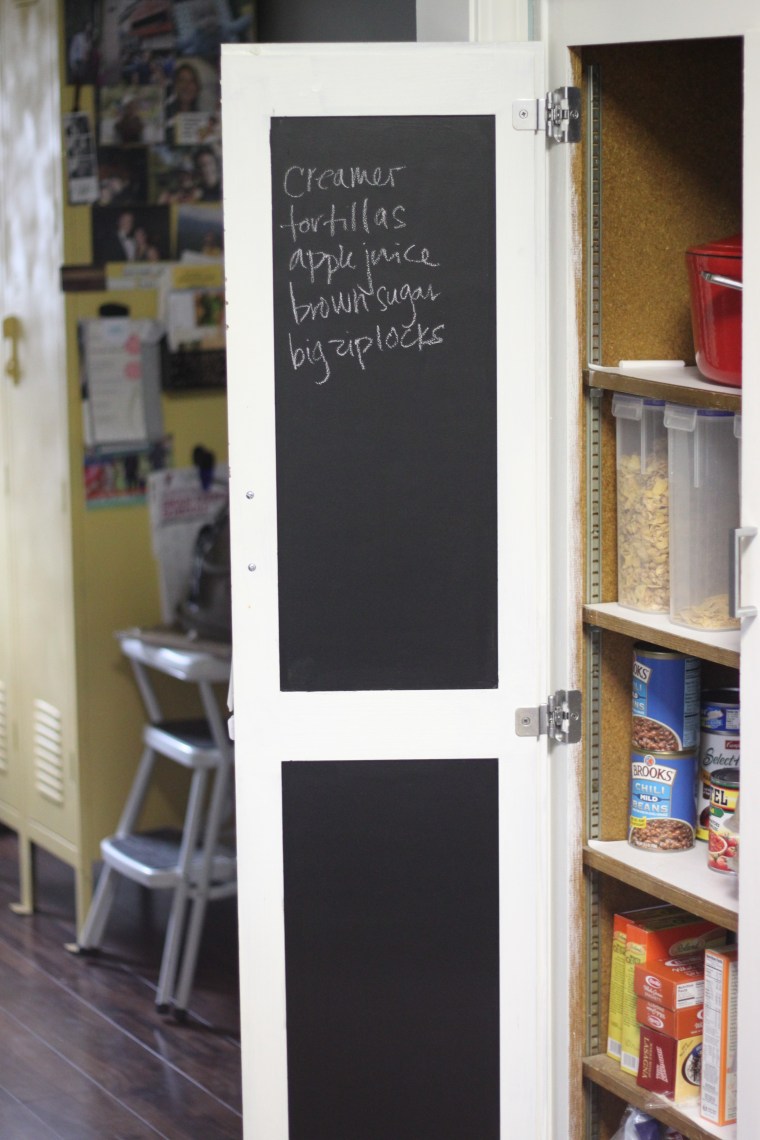 creamer
tortillas
apple juice
brown sugar
big ziplocks
BROOKS
CHILI
MILD
BEANS
Select
LASAGNA